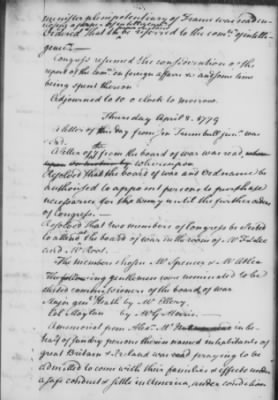 minister plenipotentiary of France was read
Ordered That the be referred to the comee. of intelli-
gence.
Congress resumed the consideration of the
report of the comee. on foreign affairs & and some time
being spent thereon
Adjourned to 10 o Clock to morrow.
Thursday April 8. 1779
A letter of this day from Jon Trumbull junr. was
read.
A letter of the from the board of war was read,
whereupon
Resolved That the board of war and Ordnance be
authorised to appoint persons to purchase
necessaries for the army until the further order
of Congress.
Resolved That two members of Congress be elected
to attend the board of war in the room of Mr
and Mr Root.
The members chosen Mr Spencer & Mr Atlee
The following gentlemen were nominated to be
commissioners of the board of war
Major genl. Heath by Mr Ellery.
Col Moylan by Mr G Morris.
A memorial from Alexr. Mc in be-
half of sundry persons therein named inhabitants of
great Britain & Ireland was read praying to be
admitted to come with their families & effects under
a safe conduct & settle in America, under condition